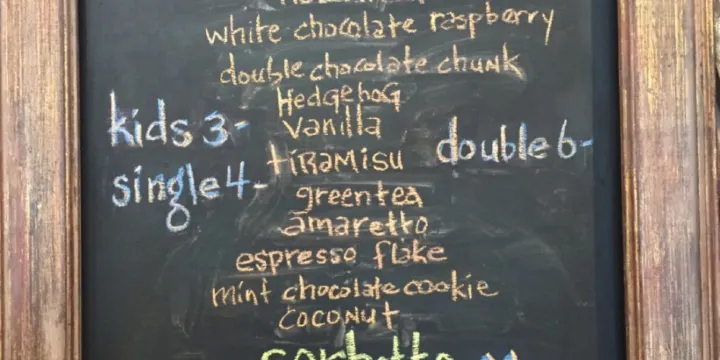 white chocolate raspberry
double chocolate chunk
Hedgehog
kids 3-
Vanilla
double 6-
tiRamisu
single 4-
green tea
amaretto
espresso flake
mint chocolate cookie
coconut